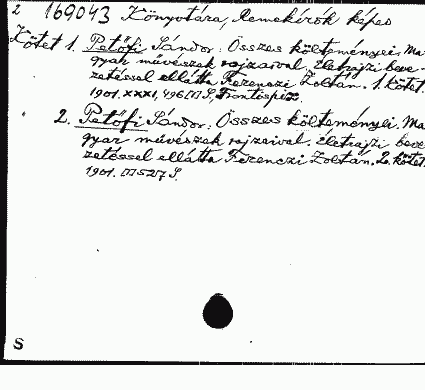 2 169043 Könyvtára, Remekírók képes
Kötet 1. Petőfi Sándor: Összes költeményei. Ma-
gyar művészek rajzaival. Életrajzi beve-
zetéssel ellátta Ferenczi Zoltán. 1. kötet.
1901. XXXI, 496 [1] S. Frontispiz.
2. Petőfi Sándor: Összes költeményei. Ma
gyar művészek rajzaival. Életrajzi beve
zetéssel ellátta Ferenczi Zoltán. 2. kötet.
1901. 527 S.
S